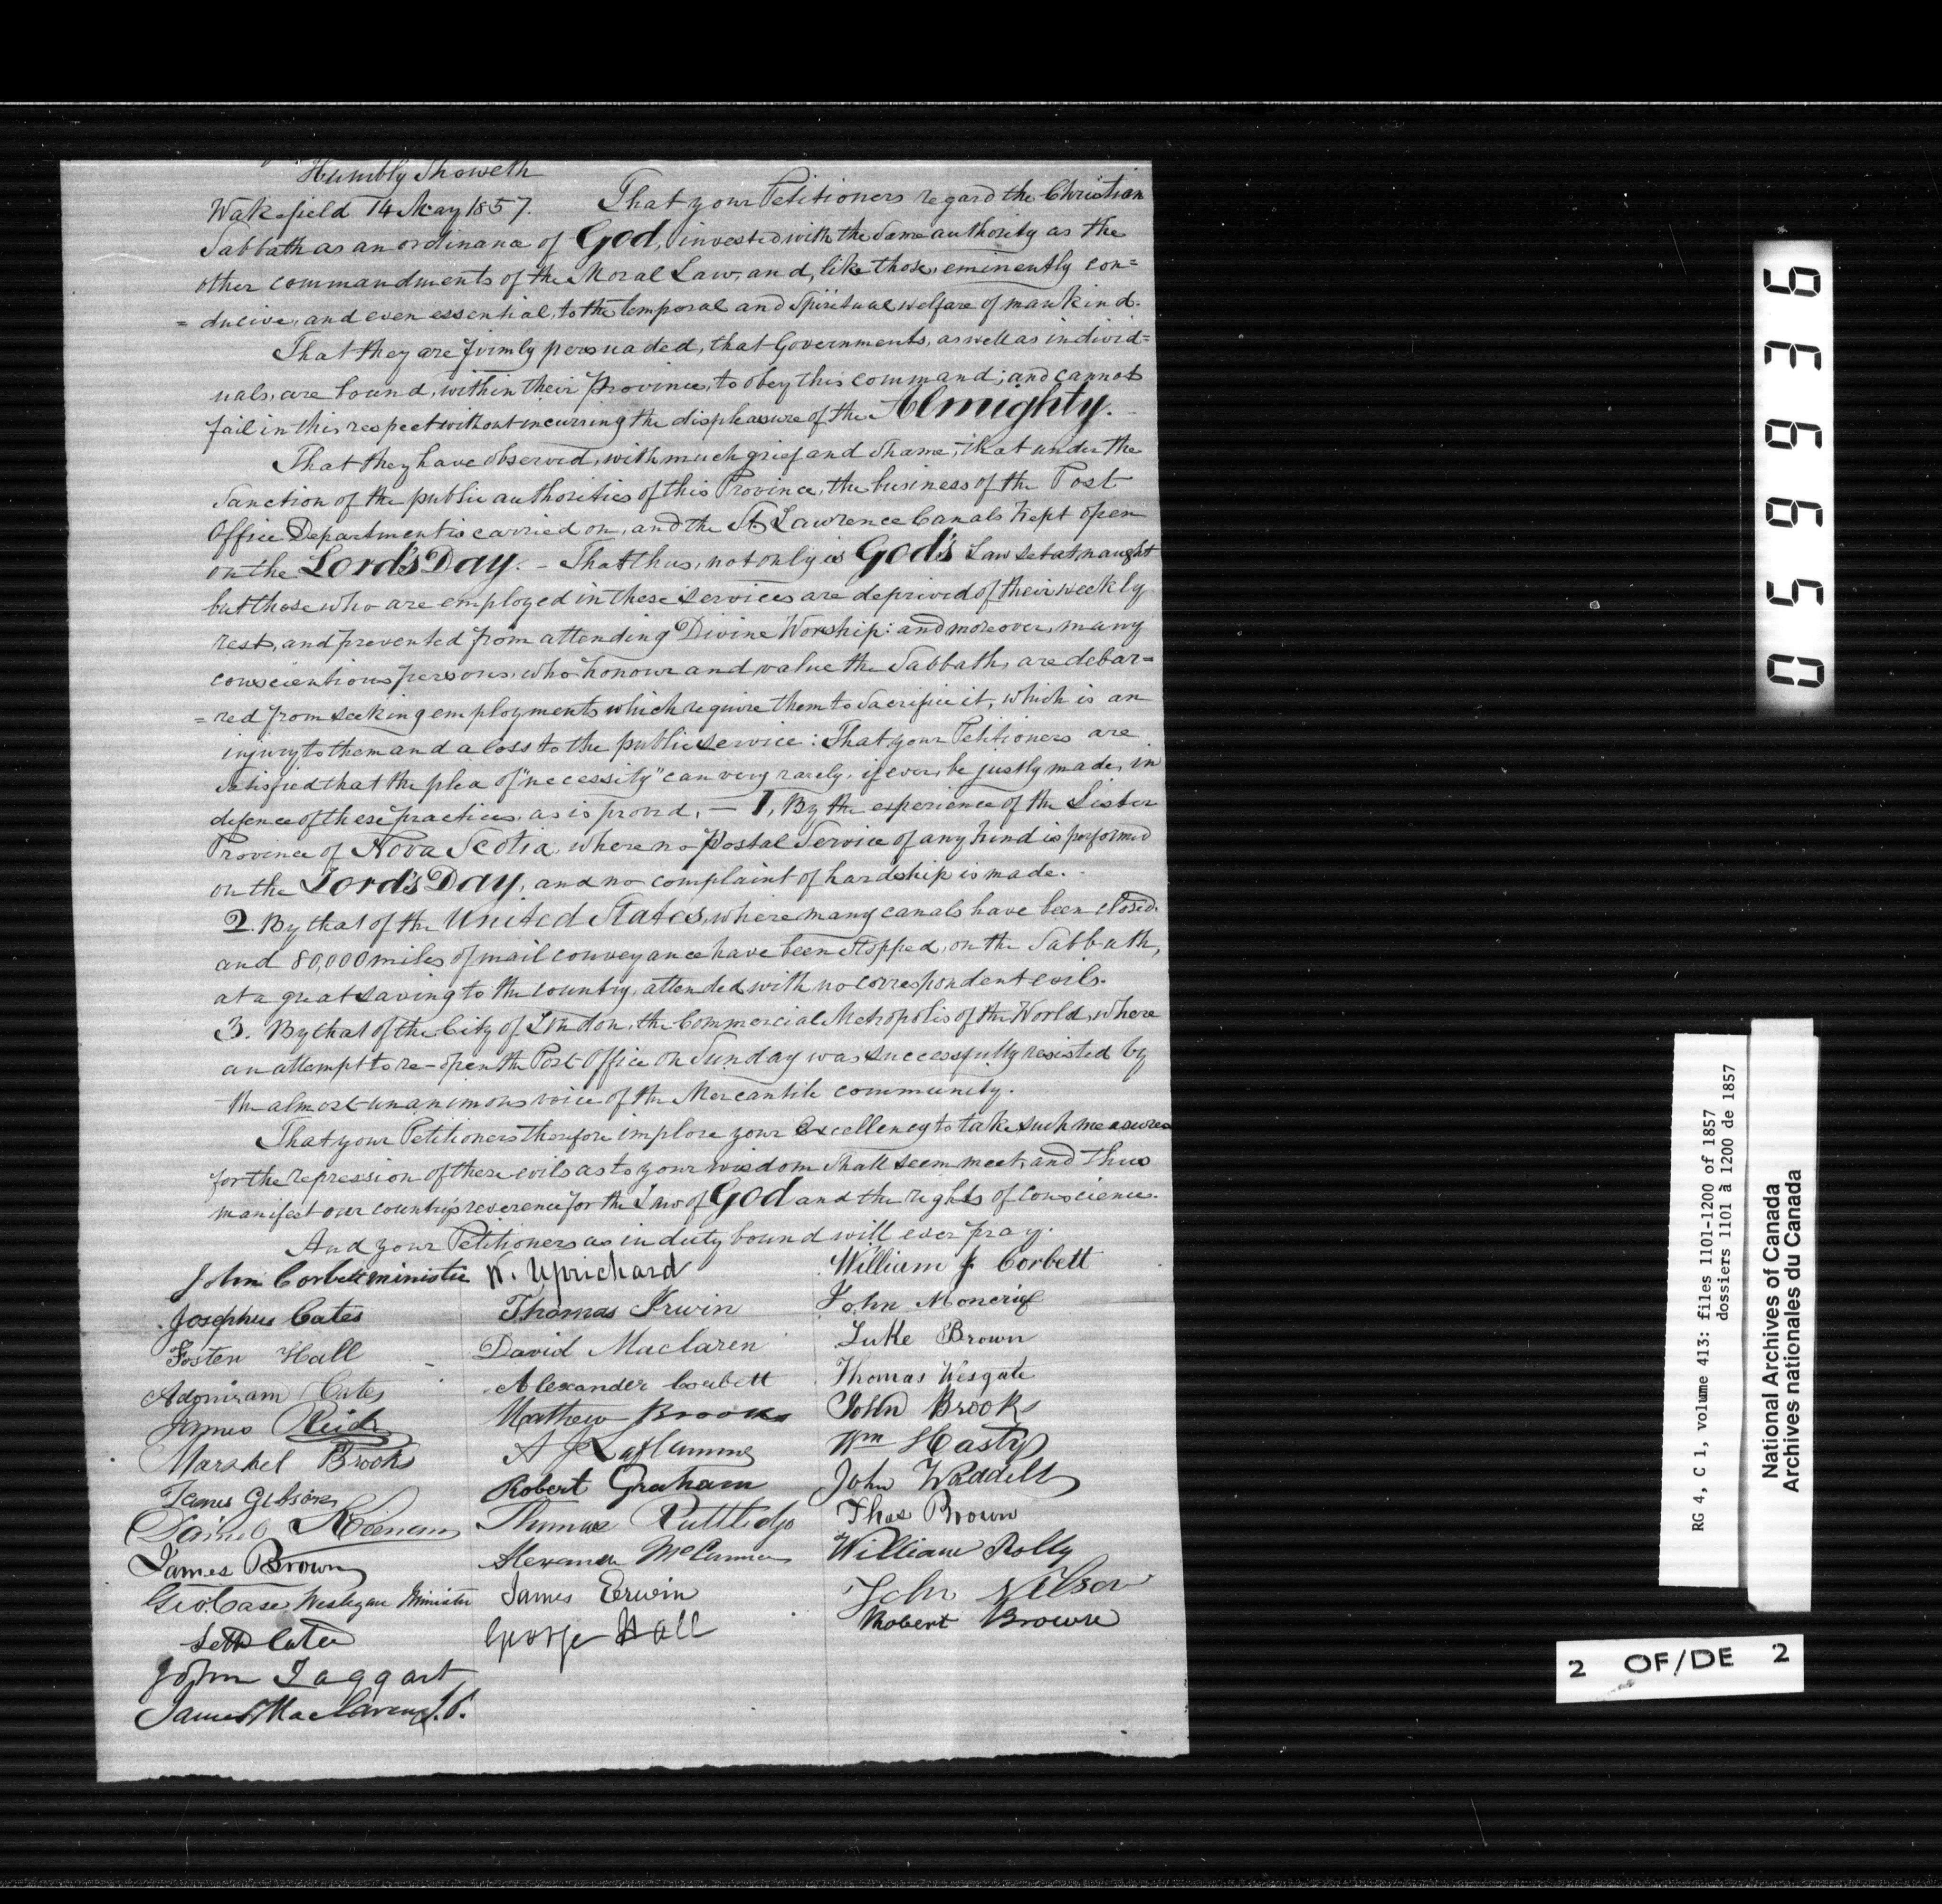 Humbly Showeth
Wakefield 14 May 1857. That your Petitioners regard the Christian
Sabbath as an ordinance of God, invested with the same authority as the
other commandments of the Moral Law, and, like those, eminently con=
=ducive, and even essential, to the temporal and spiritual welfare of mankind.
That they are firmly persuaded, that Governments, as well as individ=
uals, are bound, within their Province, to obey this command; and cannot
fail in this respect without incurring the displeasure of the Almighty.
That they have observed, with much grief and shame, that under the
sanction of the public authorities of this Province, the business of the Post
Office Department is carried on, and the St. Lawrence Canals kept open
on the Lord's Day. - That thus, not only is God's Law set at naught
but those who are employed in these services are deprived of their weekly
rest, and prevented from attending Divine Worship: and moreover, many
conscientious persons, who honour and value the Sabbath, are debar=
=red from seeking employments which require them to sacrifice it, which is an
injury to them and a loss to the public service: That your Petitioners are
satisfied that the plea of "necessity" can very rarely, if ever, be justly made, in
defence of these practices, as is proved, — 1, By the experience of the Sister
Province of Nova Scotia, where no Postal Service of any kind is performed
on the Lord's Day, and no complaint of hardship is made. -
2. By that of the United States, where many canals have been closed
and 80,000 miles of mail conveyance have been stopped, on the Sabbath,
at a great saving to the country, attended with no correspondent evils.
3. By that of the City of London, the Commercial Metropolis of the World, where
an attempt to re-open the Post Office on Sunday was successfully resisted by
the almost unanimous voice of the Mercantile community.
That your Petitioners therefore implore your Excellency to take such measures
for the repression of these evils as to your wisdom shall seem meet, and thus
manifest our country's reverence for the Law of God and the rights of conscience.
And your Petitioners as in duty bound will ever pray.
John Corbett minister W. Uprichard William J Corbett
Josephus Cates Thomas Irwin John Moncrief
Foster Hall David Maclaren Luke Brown
Adoniram Cates Alexander Corbett Thomas Wesgate
James Reid Mathew Brooks John Brooks
Marshel Brooks A J Laflamme Wm Hasty
James Gibson Robert Graham John Waddell
Daniel Keenan Thomas Ruttledge Thos Brown
James Brown McCunn William Rolly
Geo. Case Wesleyan Minister James Erwin John Nelson
Seth Cates George Hall Robert Brown
John Taggart
James Maclaren J.P.
059936
RG 4, C 1, volume 413: files 1101-1200 of 1857
dossiers 1101 à 1200 de 1857
National Archives of Canada
Archives nationales du Canada
2 OF/DE 2